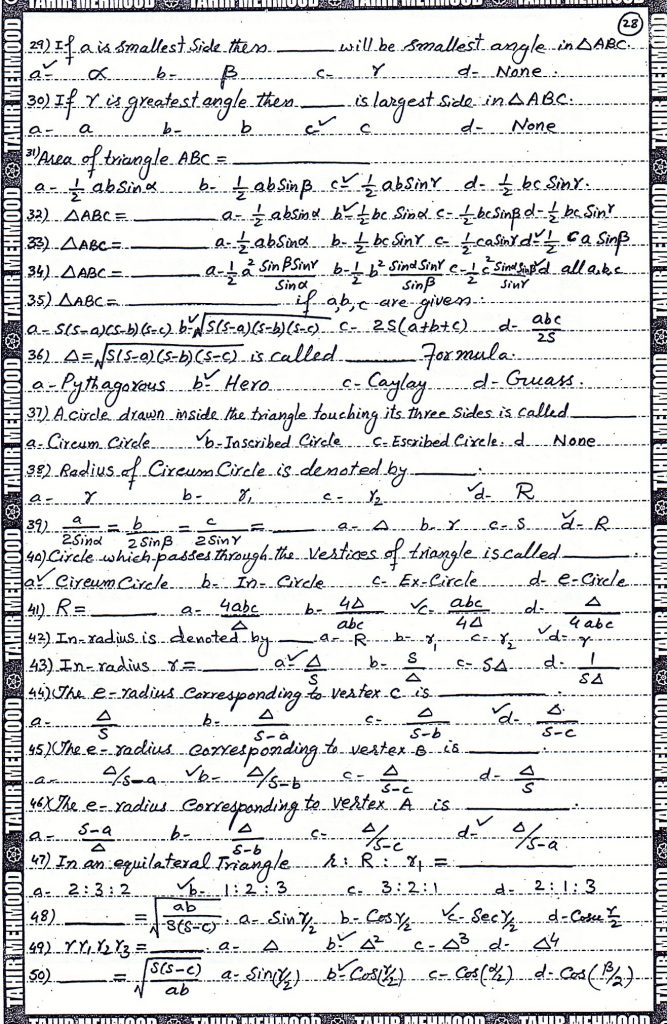 TAHIR MEHMOOD TAHIR MEHMOOD TAHIR MEHMOOD TAHIR MEHMOOD
28
29) If a is smallest side then ______ will be smallest angle in △ABC.
a-✓ α b- β c- γ d- None.
30) If γ is greatest angle then ______ is largest side in △ABC.
a- a b- b c✓ c d- None
31) Area of triangle ABC = ______
a- 1/2 ab Sinα b- 1/2 ab Sinβ c-✓ 1/2 ab Sinγ d- 1/2 bc Sinγ.
32) △ABC = ______ a- 1/2 ab Sinα b-✓ 1/2 bc Sinα c- 1/2 bc Sinβ d- 1/2 bc Sinγ
33) △ABC = ______ a- 1/2 ab Sinα b- 1/2 bc Sinγ c- 1/2 ca Sinγ d-✓ 1/2 ca Sinβ
34) △ABC = ______ a- 1/2 a² SinβSinγ/Sinα b- 1/2 b² SinαSinγ/Sinβ c- 1/2 c² SinαSinβ/Sinγ ✓d all a,b,c
35) △ABC = ______ if a,b,c are given.
a- S(S-a)(S-b)(S-c) b-✓ √S(S-a)(S-b)(S-c) c- 2S(a+b+c) d- abc/2S
36) △ = √S(S-a)(S-b)(S-c) is called ______ Formula.
a- Pythagorous b-✓ Hero c- Caylay d- Gruass.
37) A circle drawn inside the triangle touching its three sides is called ______
a. Circum Circle ✓b- Inscribed Circle c- Escribed Circle. d None
38) Radius of Circum Circle is denoted by ______.
a- r b- r₁ c- r₂ ✓d- R
39) a/2Sinα = b/2Sinβ = c/2Sinγ = ______ a- △ b- r c- S ✓d- R
40) Circle which passes through the vertices of triangle is called ______
a✓ Circum Circle b- In- Circle c- Ex-Circle d- e-Circle
41) R = ______ a- 4abc/△ b- 4△/abc ✓c- abc/4△ d- △/4abc
42) In-radius is denoted by ______ a- R b- r₁ c- r₂ ✓d- r
43) In-radius r = ______ a-✓ △/S b- S/△ c- S△ d- 1/S△
44) The e-radius corresponding to vertex C is ______.
a- △/S b- △/S-a c- △/S-b ✓d- △/S-c
45) The e-radius corresponding to vertex B is ______.
a- △/S-a ✓b- △/S-b c- △/S-c d- △/S
46) The e-radius corresponding to vertex A is ______.
a- S-a/△ b- △/S-b c- △/S-c d-✓ △/S-a
47) In an equilateral Triangle r : R : r₁ = ______
a- 2:3:2 ✓b- 1:2:3 c- 3:2:1 d- 2:1:3
48) ______ = √ab/S(S-C). a- Sin γ/2 b- Cos γ/2 ✓c- Sec γ/2 d- Cosec γ/2
49) r r₁ r₂ r₃ = ______ a- △ b✓ △² c- △³ d- △⁴
50) ______ = √S(S-c)/ab a- Sin(γ/2) b-✓ Cos(γ/2) c- Cos(α/2) d- Cos(β/2)
TAHIR MEHMOOD TAHIR MEHMOOD TAHIR MEHMOOD TAHIR MEHMOOD